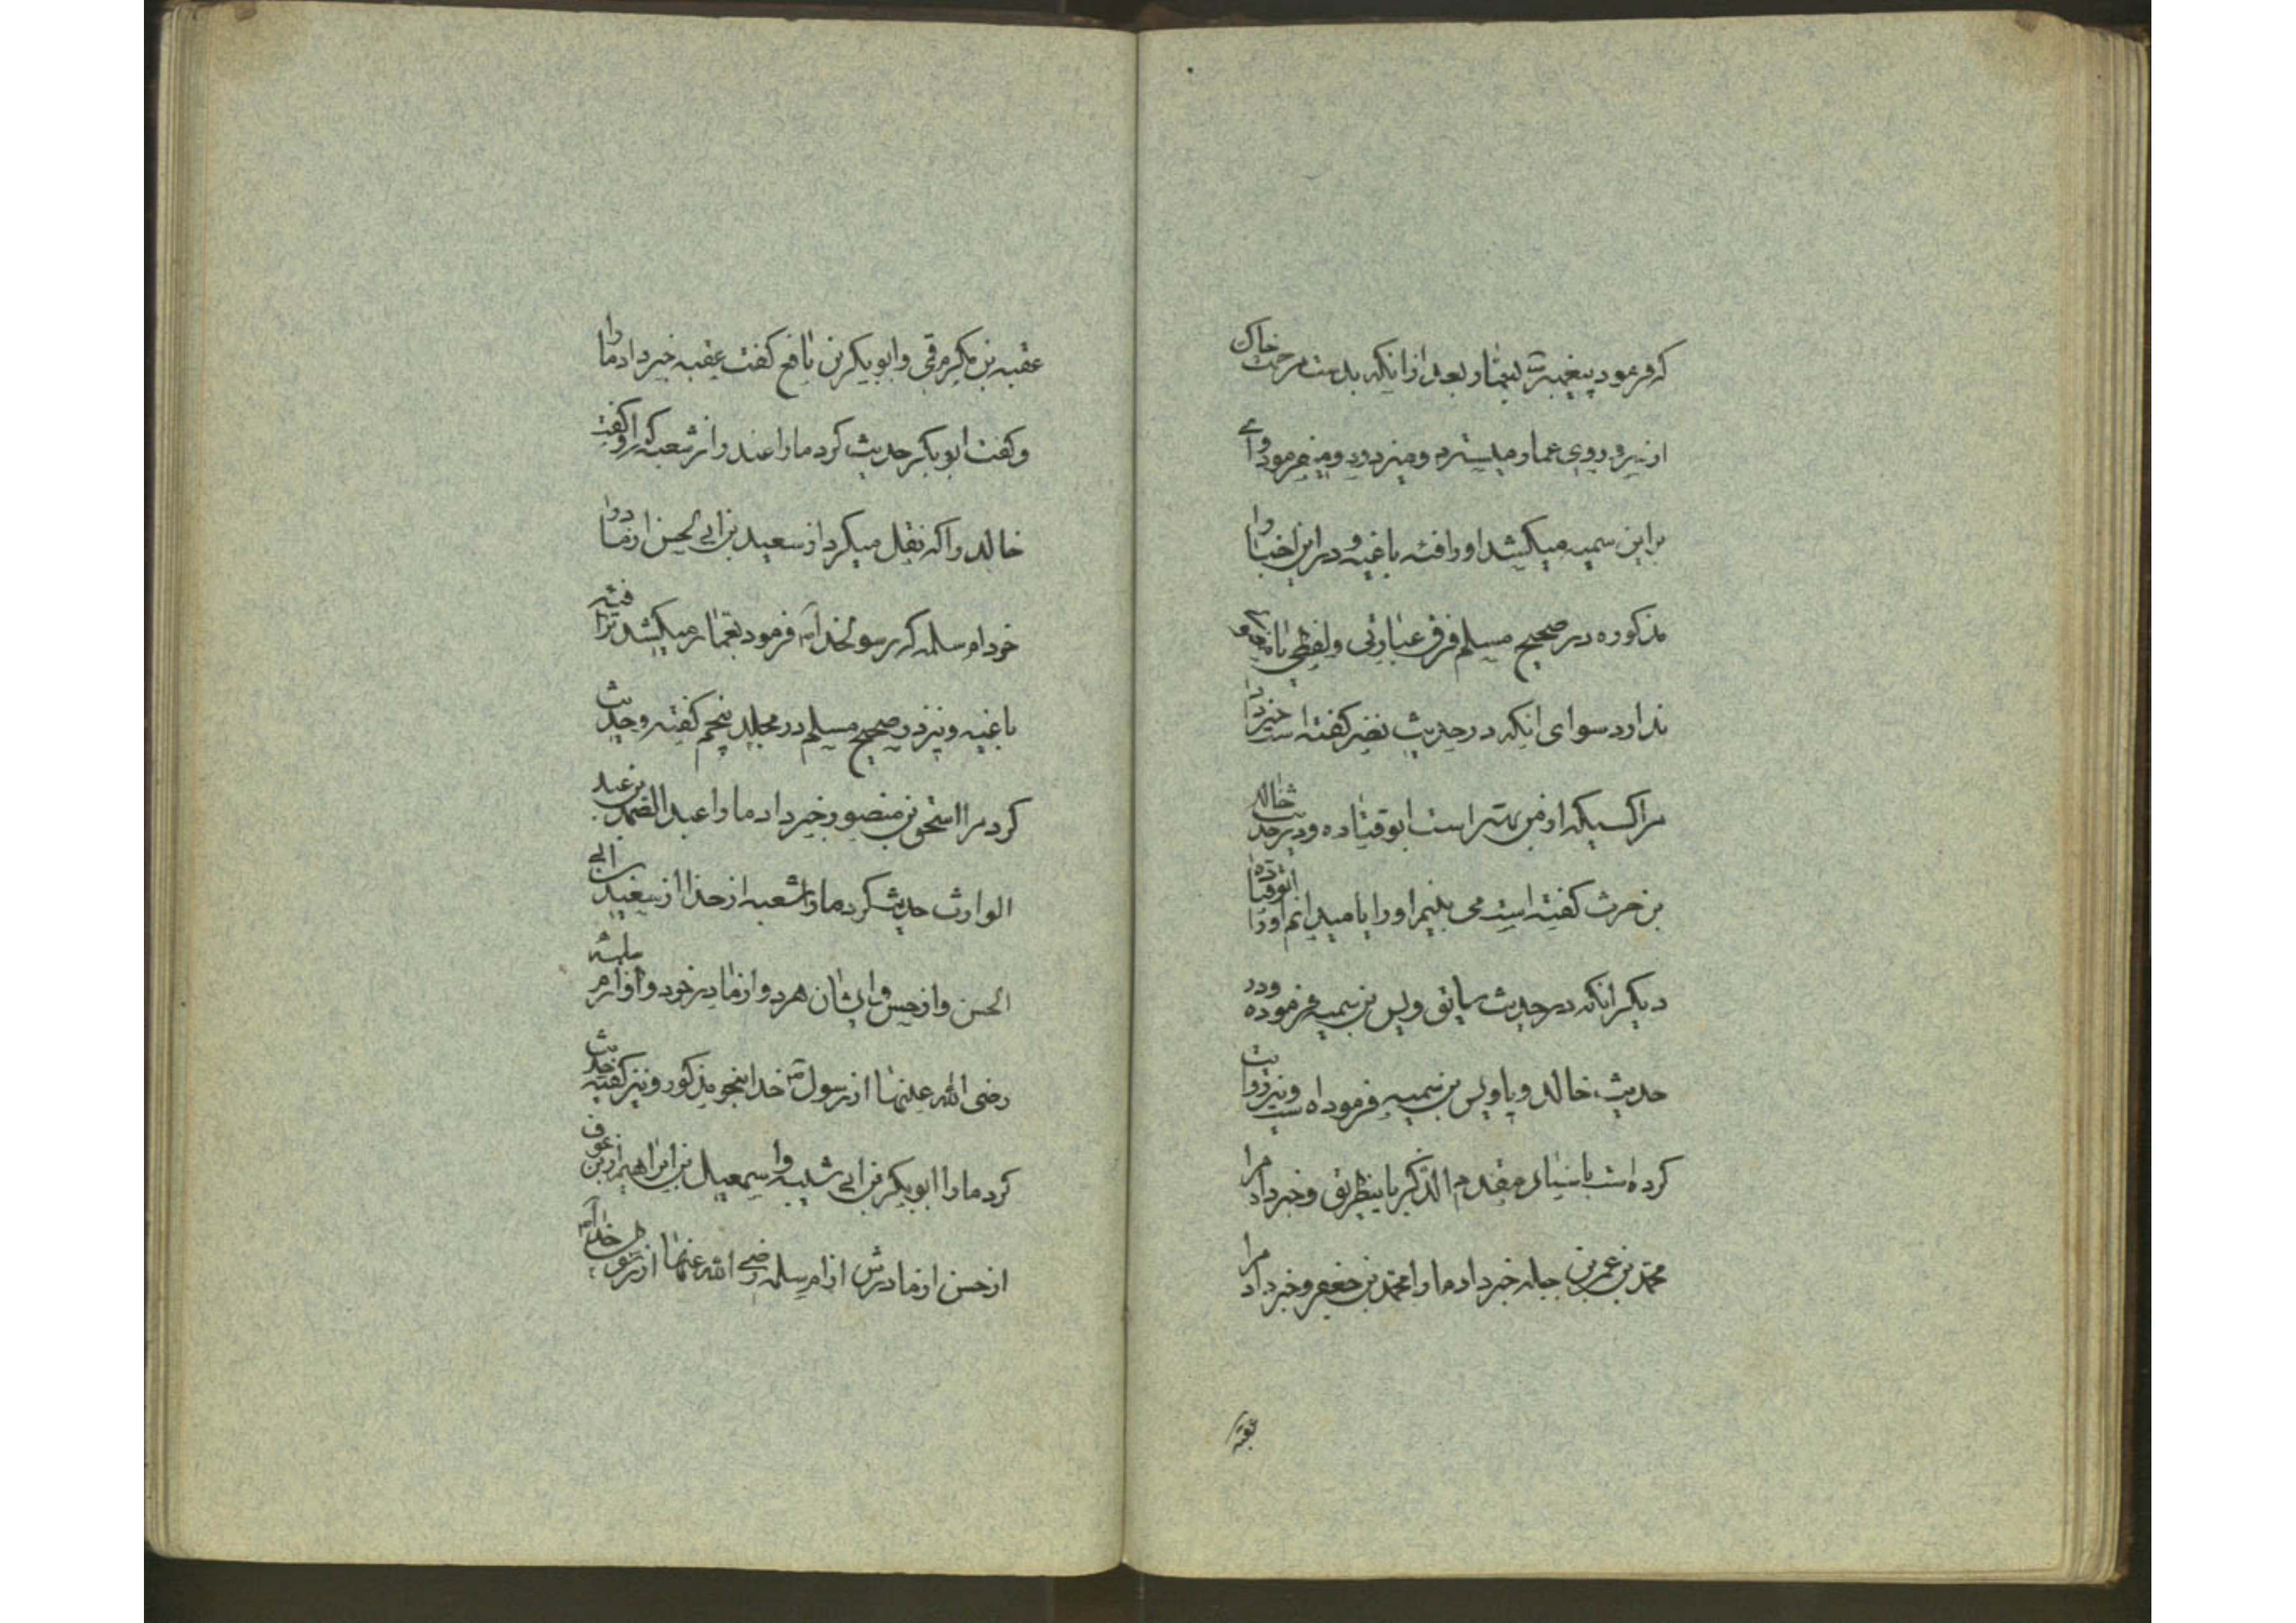 که فرمود پیغمبر بعمار بعد از انکه بدست مرحمت خاک
از سر و روی عمار میسترد ومیزدود ومیفرمود وای
بر ابن سمیه میکشد او را فئه باغیه و در این اخبار
مذکوره در صحیح مسلم فرق عبارتی ولفظی با
ندارد سوای انکه در حدیث نضر کفته است خبر داد
مرا کسیکه از من بهتر است ابو قتاده ودر حدیث خالد
بن حرث کفته است می بینم او را یا میدانم او را ابو قتاده
دیکر انکه در حدیث سابق ویس بن سمیه فرموده ودر
حدیث خالد ویا ویس بن سمیه فرموده است ونیز روایت
کرده است باسناد مقدم الذکر باینطریق وخبر داد مرا
محمد بن عمر بن جبله خبر داد ما را محمد بن جعفر وخبر داد مرا
عقبه
عقبه بن مکرم عمی وابو بکر بن نافع کفت عقبه خبر داد ما را
وکفت ابو بکر حدیث کرد ما را غندر از شعبه که او کفت
خالد را که نقل میکرد از سعید بن ابی الحسن از مادر
خود ام سلمه که رسول خدا فرمود بعمار میکشد ترا فئه
باغیه ونیز در صحیح مسلم در مجلد پنجم کفته وحدیث
کرد مرا اسحق بن منصور خبر داد ما را عبد الصمد بن عبد
الوارث حدیث کرد ما را شعبه از حذا از سعید بن ابی
الحسن واز حسن وایشان هر دو از مادر خود واو از ام سلمه
رضی الله عنهما از رسول خدا بنحو مذکور ونیز کفته حدیث
کرد ما را ابو بکر بن ابی شیبه واسمعیل بن ابراهیم از ابن عوف
از حسن از مادرش از ام سلمه رضی الله عنهما از رسول خدا